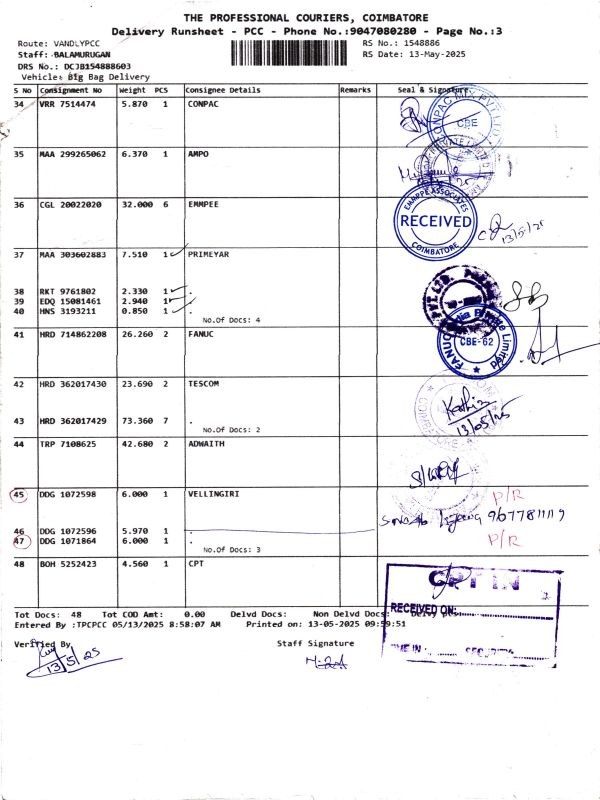 THE PROFESSIONAL COURIERS, COIMBATORE
Delivery Runsheet - PCC - Phone No.:9047080280 - Page No.:3
Route: VANDLYPCC RS No.: 1548886
Staff: BALAMURUGAN RS Date: 13-May-2025
DRS No.: DCJB154888603
Vehicle: Big Bag Delivery
S No Consignment No Weight PCS Consignee Details Remarks Seal & Signature
34 VRR 7514474 5.870 1 CONPAC
CONPAC MIX PVT LTD.
CBE
35 MAA 299265062 6.370 1 AMPO
36 CGL 20022020 32.000 6 EMMPEE
EMMPEE ASSOCIATES
RECEIVED
COIMBATORE
13/5/25
37 MAA 303602883 7.510 1 PRIMEYAR
38 RKT 9761802 2.330 1 .
39 EDQ 15081461 2.940 1 .
40 HNS 3193211 0.850 1 .
No.Of Docs: 4
PVT. LTD.
41 HRD 714862208 26.260 2 FANUC
FANUC India Private Limited
CBE-62
42 HRD 362017430 23.690 2 TESCOM
43 HRD 362017429 73.360 7 .
No.Of Docs: 2
13/05/25
44 TRP 7108625 42.680 2 ADWAITH
45 DDG 1072598 6.000 1 VELLINGIRI
P/R
9677811119
46 DDG 1072596 5.970 1 .
47 DDG 1071864 6.000 1 .
P/R
No.Of Docs: 3
48 BOH 5252423 4.560 1 CPT
CPT IN
RECEIVED ON:
TIME IN SECURITY
Tot Docs: 48 Tot COD Amt: 0.00 Delvd Docs: Non Delvd Docs:
Entered By :TPCPCC 05/13/2025 8:58:07 AM Printed on: 13-05-2025 09:59:51
Verified By Staff Signature
13/5/25